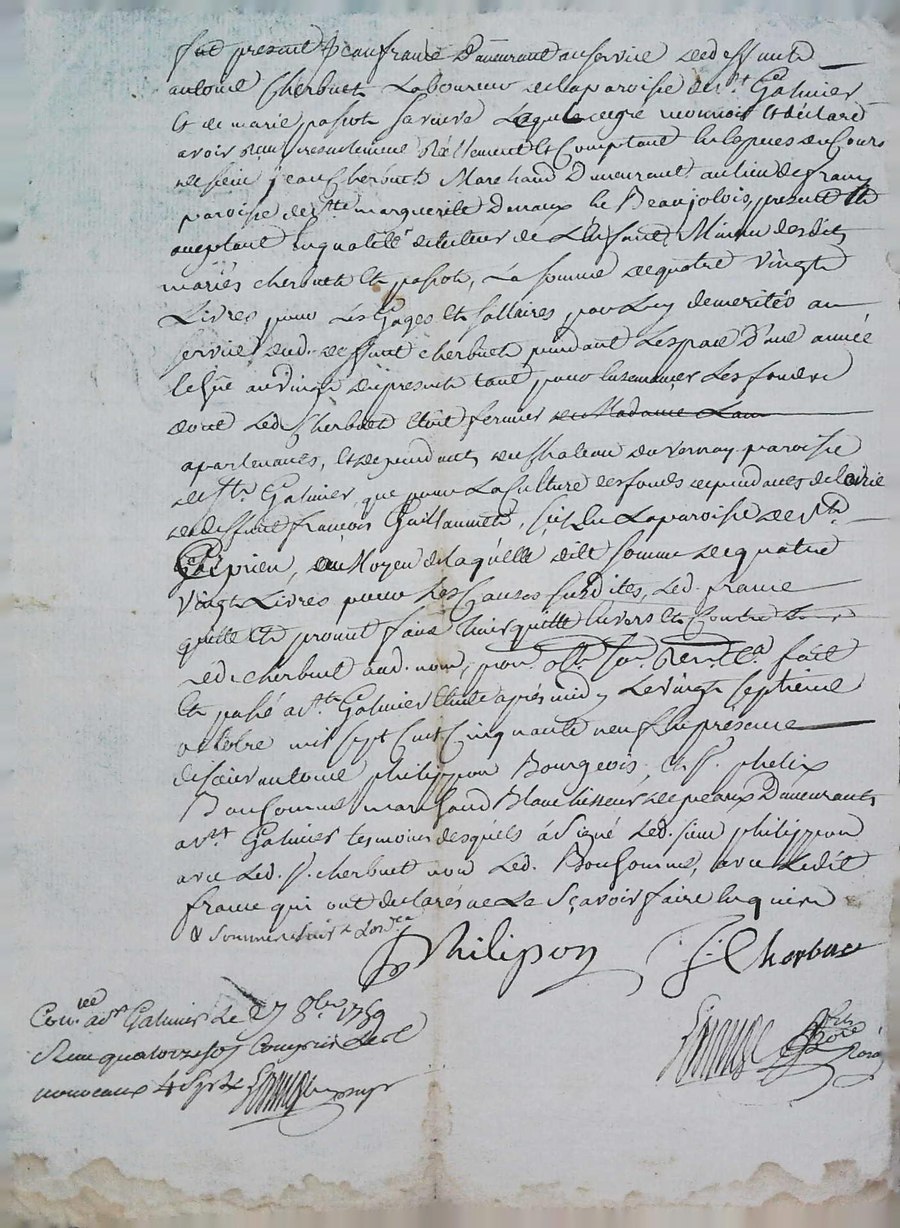 fut present Jean france Demeurant au service de deffunt
antoine Cherbuet Laboureur de la paroisse de St Galmier
Et de marie pasot sa veuve Lequel de gré reconnoit Et déclare
avoir reçu presentement Réellement Et Comptant En Especes de Cours
de sieur jean Cherbuet Marchand Demeurant au lieu de
paroisse de Ste marguerite Denaux En Beaujolois, present Et
aceptant En qualité de tuteur de L'Enfant Mineur desdits
mariés cherbuet Et pasot, La somme de quatre vingt
Livres pour Les Gages Et sallaires par Luy merités au
service dud. deffunt cherbuet pendant L'espace d'une année
au vingt du present tant pour Ensemencer Les fonds
dont Led. Cherbuet Etoit fermier de Madame
apartenants, Et dependants du Chateau du vernay paroisse
de St Galmier que pour La Culture des fonds dependances de
de deffunt françois Guillaumet, sis En La paroisse de St
Ciprien, au Moyen de Laquelle dite somme de quatre
vingt Livres pour Les Causes susdites, Led. france
quitte Et promet faire tenir quitte Envers Et Contre
Led. cherbuet aud. nom, par
Et passé a St Galmier Etude après midy Le vingt septieme
octobre mil sept Cent Cinquante neuf En presence
de sieur antoine philippon Bourgeois, Et s. phelix
Bonhomme marchand Blanchisseur de peaux Demeurants
a St Galmier temoins desquels a Signé Led. sieur philippon
avec Led. s. cherbuet non Led. Bonhomme, avec Ledit
france qui ont declarés ne Le Sçavoir faire Enquis
& Sommés
Philipon J. Cherbuet
Con.lee a St Galmier Le 27 8bre 1759
Reçu quatorze sols Compris Les
nouveaux 4 s. p. £